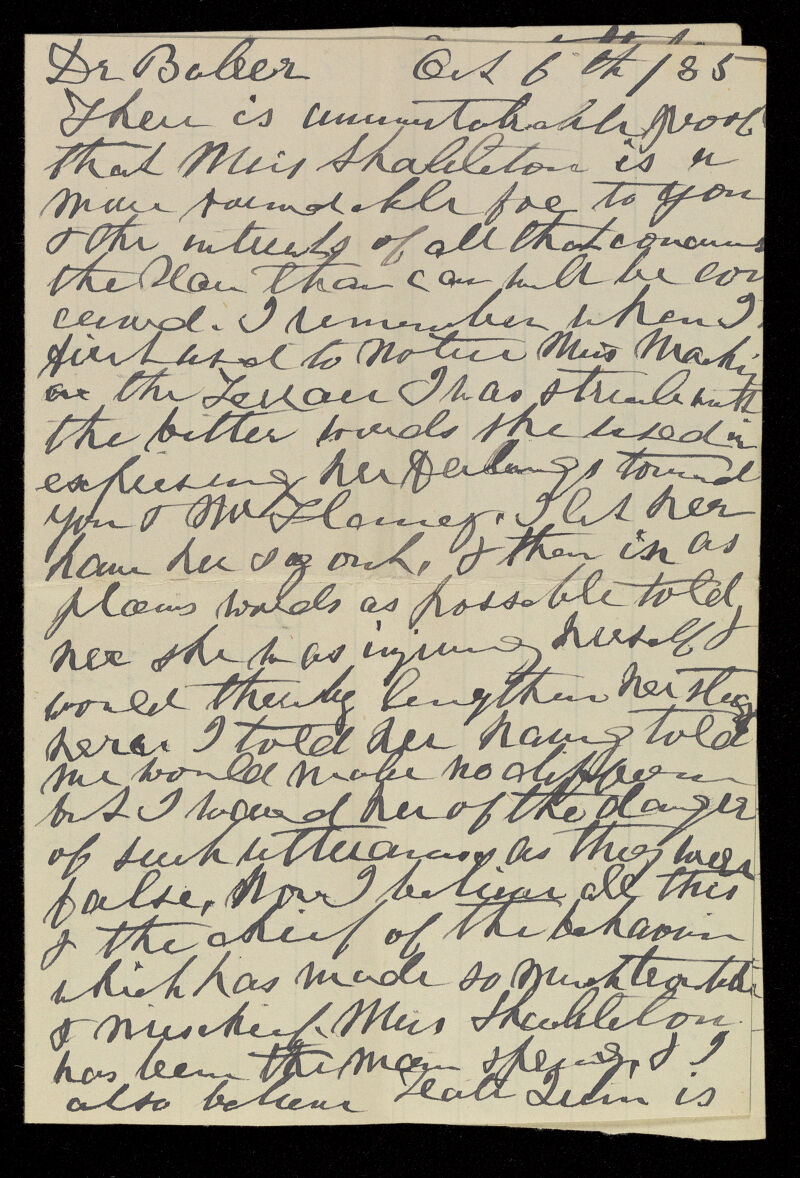 Dr Baker Oct 6th/85
There is unmistakable proof
that Miss Shakleton is a
more formidable foe to you
& the interests of all that concerns
the than can well be con
ceived. I remember when I
first used to notice Miss
on the Terrace I was struck with
the bitter words she used in
expressing her feelings toward
you & Mr I let her
have her say out, & then in as
plain words as possible told
her she was injuring herself &
would thereby lengthen her stay
here I told her having told
me would make no difference
but I warned her of the danger
of such utterances as they were
false, Now I believe all this
& the chief of the behavior
which has made so much trouble
& mischief. Miss Shakleton
has been the main spring, & I
also believe is